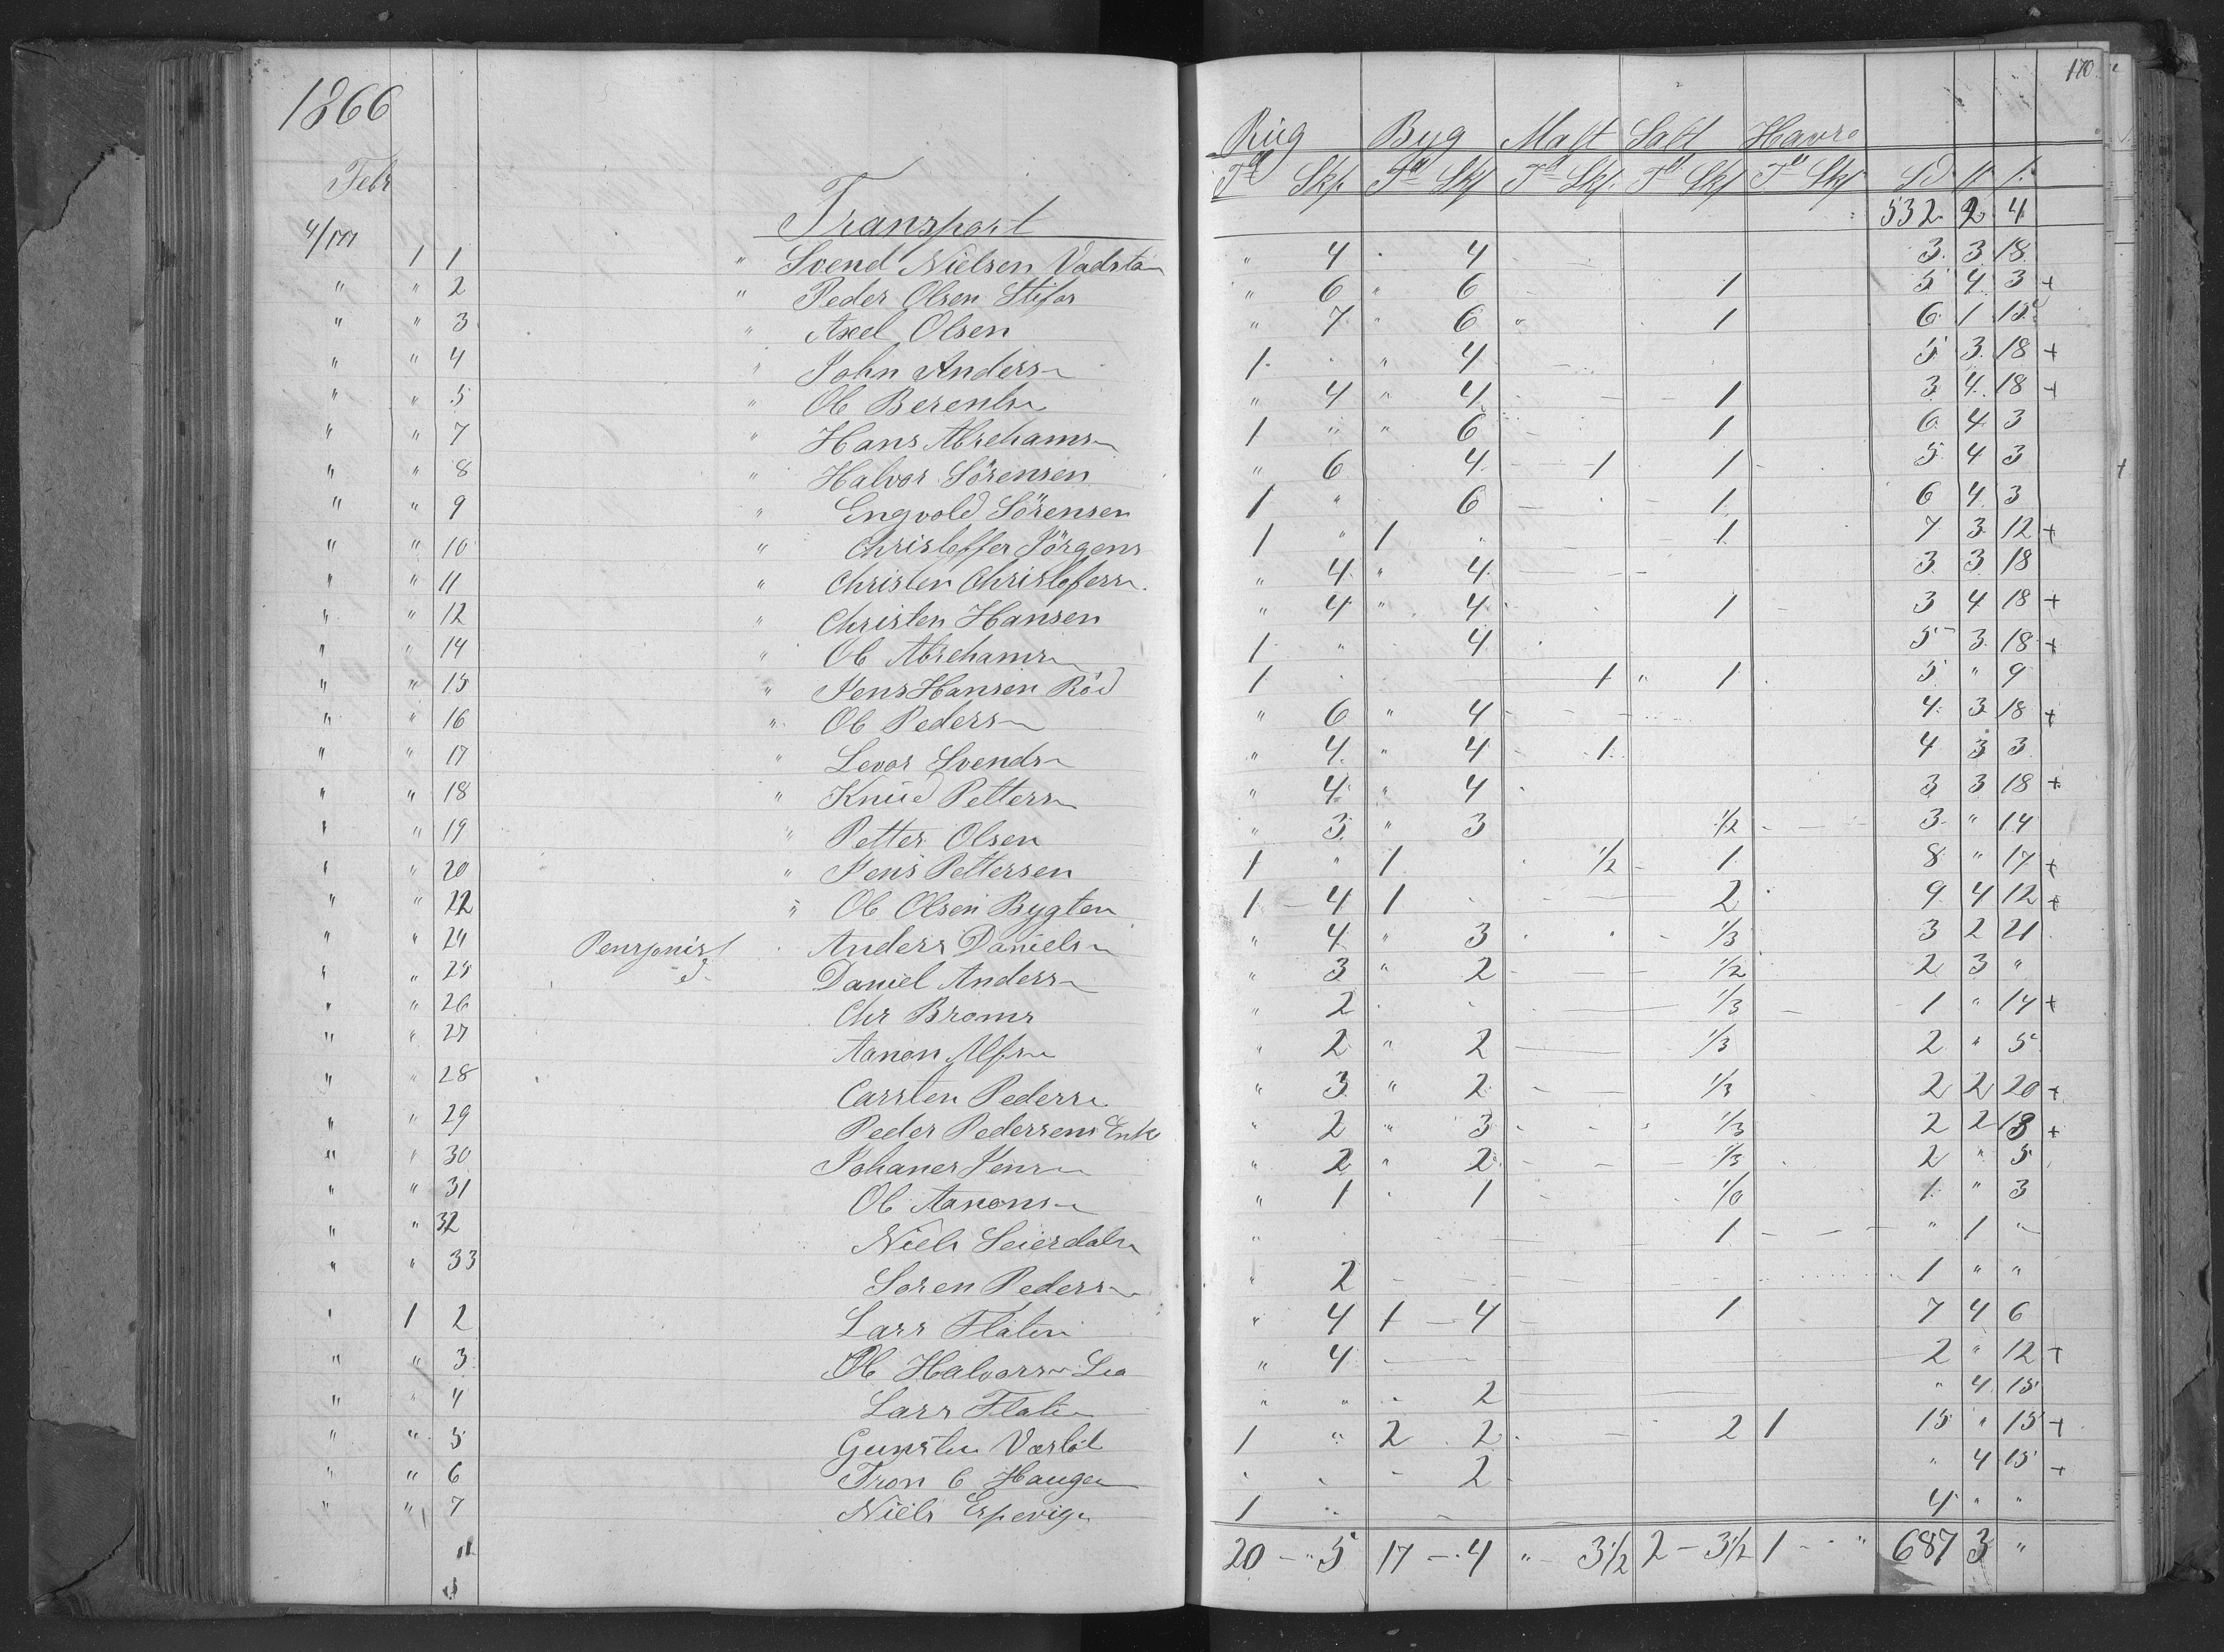 1866
170
Rug Byg Malt Salt Havre
Febr Td Skp. Td Skp Td Skp. Td Skp Td Skp Sd
4/m Transport 532 2 4
1 1 " Svend Nielsen Vadsta " 4 4 3 3 18
" " 2 " Peder Olsen Stifos " 6 " 6 1 5 4 3 +
" " 3 " Axel Olsen " 7 " 6 " 1 6 1 15
" " 4 " John Anders 1 " 4 5 3 18 +
" " 5 " Ole Berents " 4 " 4 1 3 4 18 +
" " 7 " Hans Abrehams 1 " " 6 1 6 4 3
" " 8 " Halvor Sörensen " 6 4 1 1 5 4 3
" " 9 " Engvold Sörensen 1 " 6 1 6 4 3
" " 10 " Christoffer Jörgens 1 " 1 1 7 3 12 +
" " 11 " Christen Christofers " 4 " 4 3 3 18
" " 12 " Christen Hansen " 4 " 4 1 3 4 18 +
" " 14 " Ole Abrehams 1 " 4 5 3 18 +
" " 15 " Jens Hansen Röd 1 1 " 1 5 " 9
" " 16 " Ole Peders " 6 " 4 4 3 18 +
" " 17 " Levor Svends " 4 " 4 1 4 3 3
" " 18 " Knud Petters " 4 " 4 3 3 18 +
" " 19 " Petter Olsen " 3 " 3 1/2 3 " 14
" " 20 " Jens Pettersen 1 " 1 1/2 1 8 " 17 +
" " 22 " Ole Olsen Bygten 1 - 4 1 2 9 4 12 +
" " 24 Pensjonist Anders Daniels " 4 " 3 1/3 3 2 21
" " 25 d Daniel Anders " 3 " 2 1/2 2 3 "
" " 26 Chr Broms " 2 1/3 1 " 14 +
" " 27 Aanon Alfs " 2 " 2 1/3 2 " 5
" " 28 Carsten Peders " 3 " 2 1/3 2 2 20 +
" " 29 Peder Pedersens Enke " 2 " 3 1/3 2 2 18 +
" " 30 Johanes Jens " 2 " 2 1/3 2 " 5
" " 31 Ole Aanons " 1 1 1 " 3
" " 32 Niels Seierdals " 1 " 1 "
" " 33 Soren Peders " 2 1 " "
" 1 2 Lars Flaten " 4 1 - 4 1 7 4 6
" " 3 Ole Halvors Lia " 4 2 " 12 +
" " 4 Lars Flaten " " 2 " 4 15
" " 5 Gunsten Værlöt 1 " 2 2 2 1 15 " 15 +
" " 6 Tron C Haugen " " 2 " 4 15 +
" " 7 Niels Espevig 1 4 " "
20 - " 5 17 - 4 " 3 1/2 2 - 3 1/2 1 - " 687 3 "